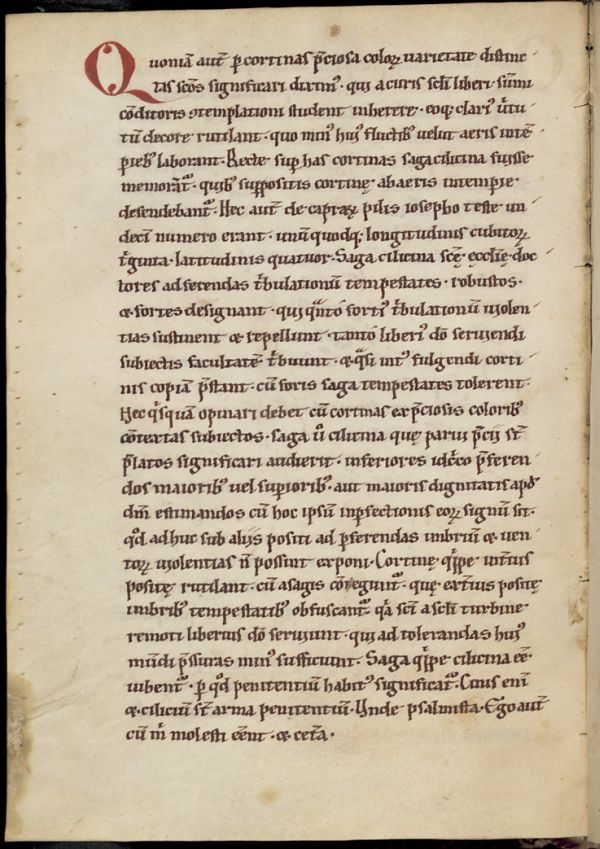 Quoniā aut̄ p̄ cortinas p̄ciosa coloꝝ uarietate distinc-
tas sc̄os significari dixim᷒· qui a curis scl̄i liberi· sūmi
cōditoris ꝯtemplationi student inherere· eoq; clari᷒ uirtu-
tū decore rutilant· quo min᷒ hui᷒ fluctib᷒ uelut aeris intē-
perieb᷒ laborant· Recte sup̄ has cortinas saga cilicina fuisse
memorāt᷑· quib᷒ suppositis cortinę ab aeris intemperie
defendebant᷑· Hec aut̄ de capraꝝ pilis iosepho teste un-
decī numero erant· unū quodq; longitudinis cubitoꝝ
t͛ginta· latitudinis quatuor· Saga cilicina scę̄ ęcclię̄ doc-
tores ad ferendas t͛bulationū tempestates· robustos·
& fortes designant· qui q̄nto forti᷒ t͛bulationū uiolen-
tias sustinent & repellunt· tanto liberi᷒ dō seruiendi
subiectis facultatē t͛buunt· & q̄si int᷒ fulgendi corti-
nis copiā p̄stant· cū foris saga tempestates tolerent·
Hec q͛squā opinari debet cū cortinas ex p̄ciosis colorib᷒
cōtextas subiectos· saga ů cilicina quę parui p̄cii st̄
p̄latos significari audierit· inferiores idc͛co p̄feren-
dos maiorib᷒ uel superiorib᷒· aut maioris dignitatis apud
dm̄ estimandos cū hoc ipsū inp̄fectionis eoꝝ signū sit·
qd̄ adhuc sub aliis positi ad p̄ferendas imbriū & uen-
toꝝ uiolentias n̄ possint exponi· Cortinę q͛ppe interius
positę rutilant· cū a sagis cōtegunt᷑· quę exterius positę
imbrib᷒ tempestatib᷒ obfuscant᷑· q̄a sc̄i a scl̄i turbine
remoti liberius dō seruiunt· qui ad tolerandas hui᷒
mūdi p̄ssuras min᷒ sufficiunt· Saga q͛ppe cilicina eē
iubent᷑· p̄ qd̄ penitentiū habit᷒ significat᷑· Cuius eni
& ciliciū st̄ arma penitentiū· Unde psalmista· Ego aut̄
cū m͛ molesti eēnt· & cet̄a·